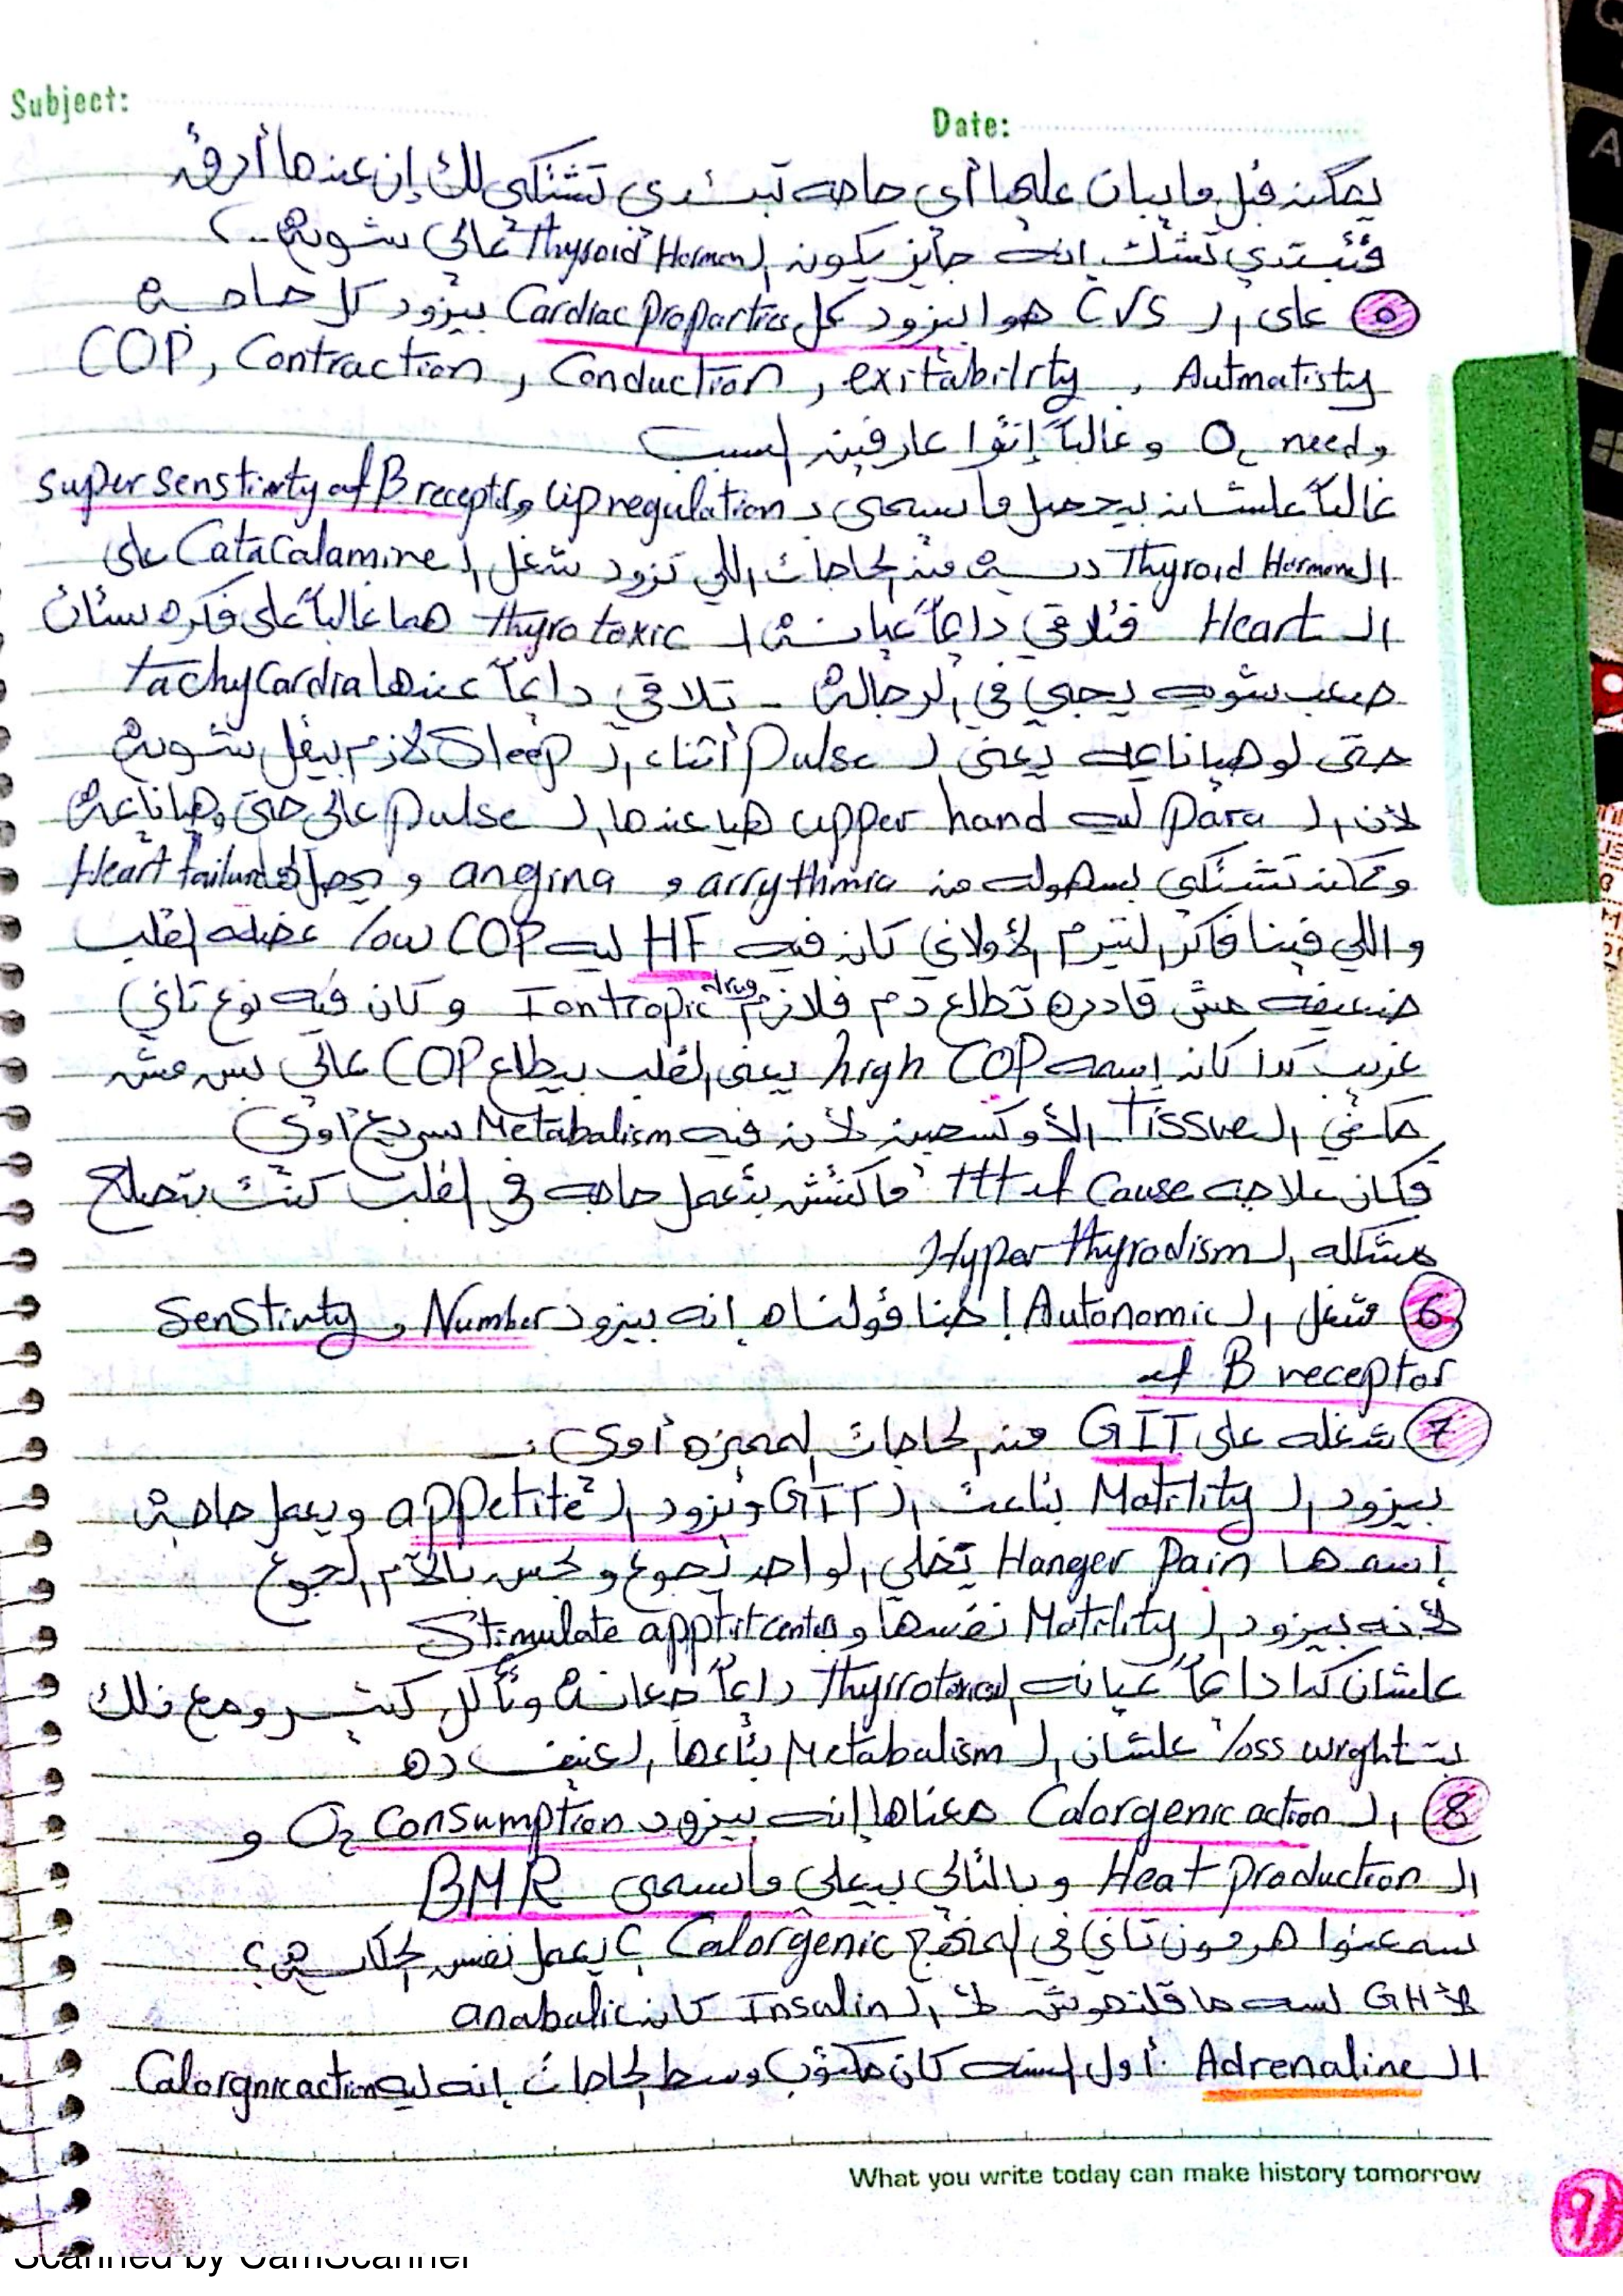 Subject:
Date:
يمكنه قبل ما يبان عليها أي حاجه تبتدي تشتكي لك إن عندها أرق
فتبتدي تشك إنه جايز يكونه ال Thyroid Hormon عالي شويه..
٥ على ال CVS هوا بيزود كل Cardiac proparties بيزود كل حاجه
COP, Contraction, Conduction, exitabilrty, Autmatisty
و O2 need و غالباً إنتوا عارفينه السبب
غالباً علشانه بيحصل ما يسمى ب upregulation و super senstivity of B receptors
ال Thyroid Hormone منه الحاجات اللي تزود شغل ال Catacalamine على
ال Heart فتلاقي دايماً عيانة ال thyrotoxic هما غالباً على فكره ستات
صعب شويه يجي في الرجالة - تلاقي دايماً عندها tachycardia
حتى لو هيا نايمه يعني ال pulse أثناء ال Sleep لازم بيقل شوية
لأن ال para ليه upper hand هيا عندها ال pulse عالي حتى وهيا نايمة
وممكنه تشتكي بسهوله منه arrythmia و angina و يحصل لها Heart failure
و اللي فينا فاكر الترم الأولاني كان فيه HF ليه low COP عضله القلب
ضعيفه مش قادره تطلع دم فلازم Iontropic drug و كان فيه نوع تاني
غريب كدا كانه إسمه high COP يعني القلب بيطلع COP عالي بس مش
مكفي ال Tissue الأوكسجين لأنه فيه Metabalism سريع أوي
فكان علاجه ttt of Cause ماكنتش بتعمل حاجه في القلب كنت بتصلح
مشكله ال Hyper thyrodism
6 شغل ال Autonomic إحنا قولناه إنه بيزود Number و Senstivty
of B receptor
7 شغله على GIT منه الحاجات المميزه أوي :-
بيزود ال Motility بتاعت ال GIT وتزود ال appetite و يعمل حاجة
إسمها Hanger pain تخلي الواحد يجوع و يحس بالآم الجوع
لأنه بيزود ال Motility نفسها و Stimulate apptit center
علشان كدا دايماً عيانه ال Thyrrotoxic دايماً جعانة وتأكل كتير ومع ذلك
بت loss wrght علشان ال Metabalism بتاعها العنيف ده
8 ال Calorgenic action معناها إنه بيزود O2 consumption و
ال Heat production و بالتالي بيعلي مايسمى BMR
سمعتوا هرمون تاني في المنهج Calorgenic ؟ يعمل نفس الحكاية ؟
لأ GH لسه ما قلنهوش لأ ال Insulin كانه anabalic
ال Adrenaline أول السنه كان مكتوب وسط الحاجات إنه ليه Calorgnic action
What you write today can make history tomorrow
Scanned by CamScanner